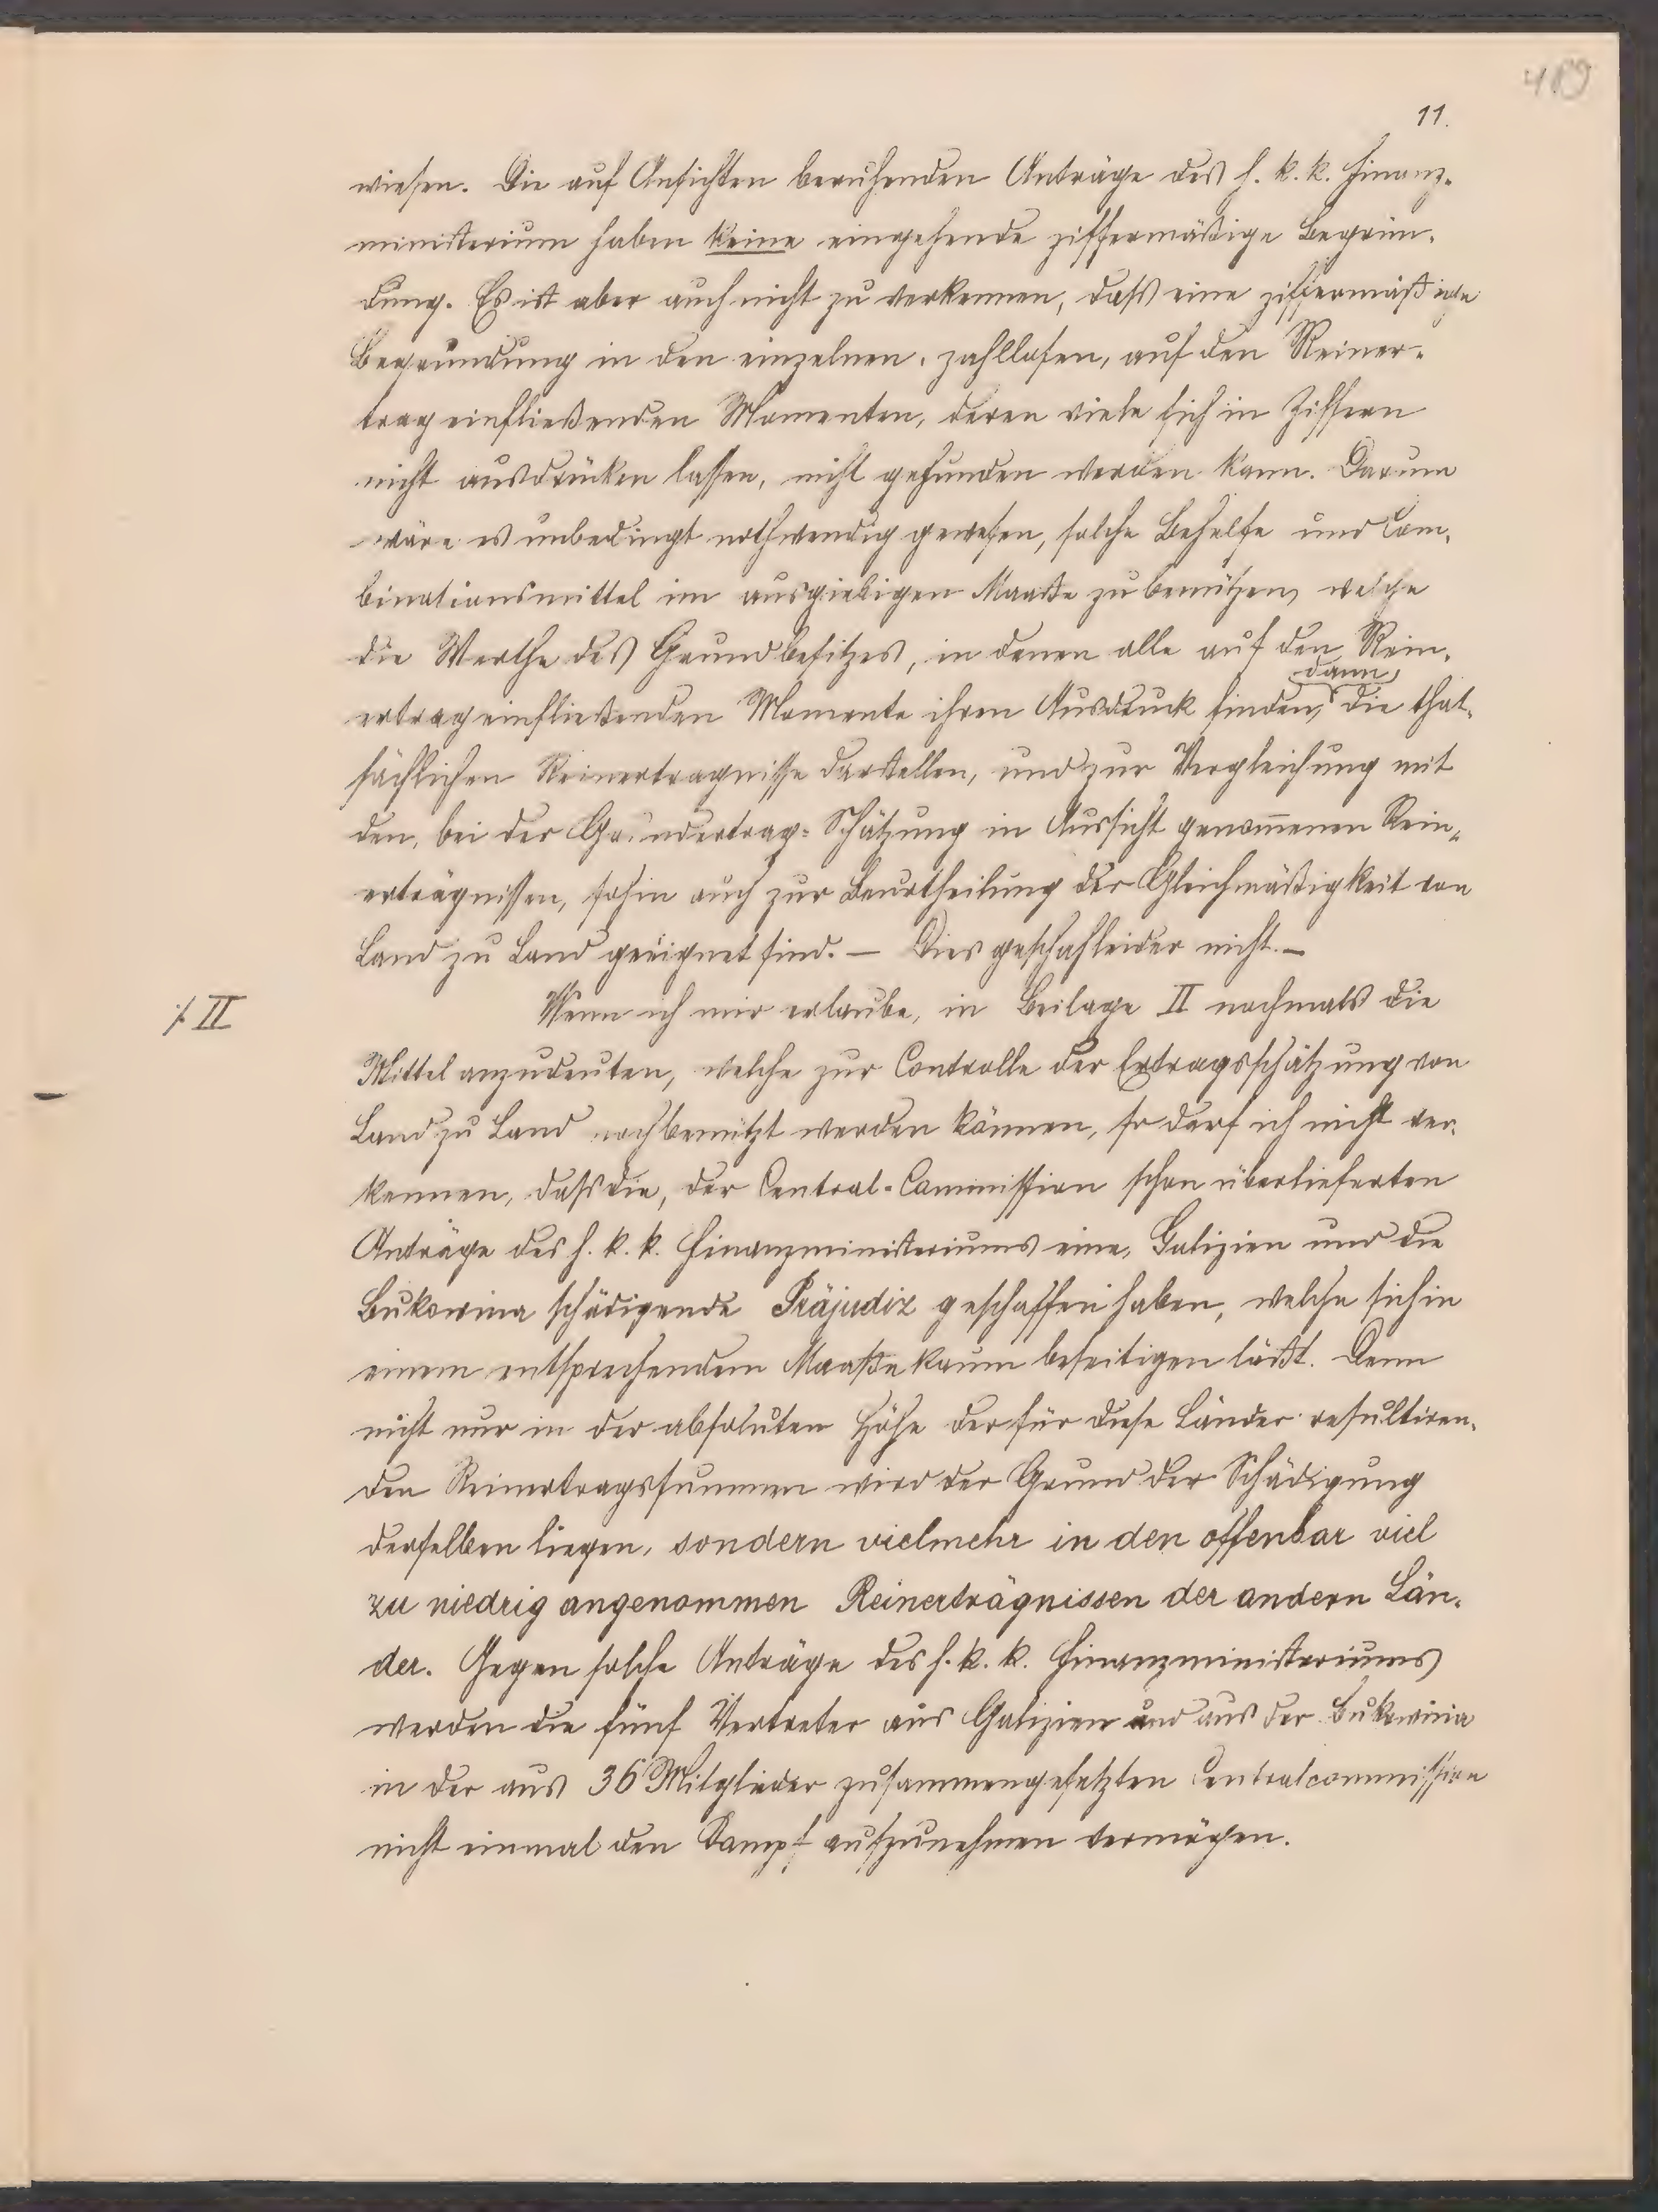 11.
wiesen. Die auf Ansichten beruhenden Anträge des h. k. k. Finanz-
ministerium haben keine eingehende ziffermäßige Begrün-
dung. Es ist aber auch nicht zu verkennen, daß eine ziffermäßige
Begründung in den einzelnen, zahllosen, auf den Reiner-
trag einfließenden Momenten, deren viele sich in Ziffern
nicht ausdrücken lassen, nicht gefunden werden kann. Darum
wäre es unbedingt nothwendig gewesen, solche Behelfe und Com-
binationsmittel im ausgiebigen Maaße zu benützen, welche
die Werthe des Grundbesitzes, in denen alle auf den Rein-
dann
ertrag einfließenden Momente ihren Ausdruck finden, die that-
sächlichen Reinertragnisse darstellen, und zur Vergleichung mit
den, bei der Grundertrag-Schätzung in Aussicht genom̅enen Rein-
erträgnissen, sohin auch zur Beurtheilung der Gleichmäßigkeit von
Land zu Land geeignet sind. — Dies geschah leider nicht. —
Wenn ich mir erlaube, in Beilage II nochmals die
./. II
Mittel anzudeuten, welche zur Controlle der Ertragsschätzung von
Land zu Land noch benützt werden können, so darf ich nicht ver-
kennen, daß die, der Central-Commission schon überlieferten
Anträge des h. k. k. Finanzministeriums eine, Galizien und die
Bukowina schädigende Präjudiz geschaffen haben, welche sich in
einem entsprechendem Maaße kaum beseitigen läßt. Denn
nicht nur in der absoluten Höhe der für diese Länder resultiren-
den Reinertragssummen wird der Grund der Schädigung
derselben liegen, sondern vielmehr in den offenbar viel
zu niedrig angenommen Reinerträgnissen der andern Län-
der. Gegen solche Anträge des h. k. k. Finanzministeriums
werden die fünf Vertreter aus Galizien und aus der Bukowina
in der aus 36 Mitglieder zusammengesetzten Centralcommission
nicht einmal den Kampf aufzunehmen vermögen.